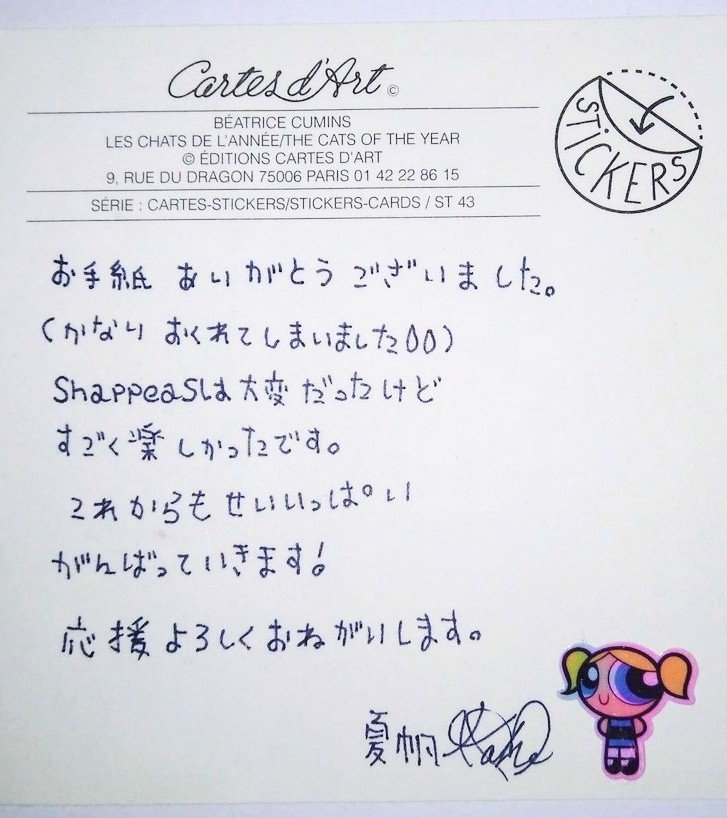 Cartes d'Art ©
BÉATRICE CUMINS
LES CHATS DE L'ANNÉE/THE CATS OF THE YEAR
© ÉDITIONS CARTES D'ART
9, RUE DU DRAGON 75006 PARIS 01 42 22 86 15
SÉRIE : CARTES-STICKERS/STICKERS-CARDS / ST 43
STICKERS
お手紙 ありがとう ございました。
(かなり おくれてしまいました00)
Shappeasは大変 だったけど
すごく楽しかったです。
これからもせいいっぱい
がんばっていきます!
応援よろしくおねがいします。
夏帆 Kaho